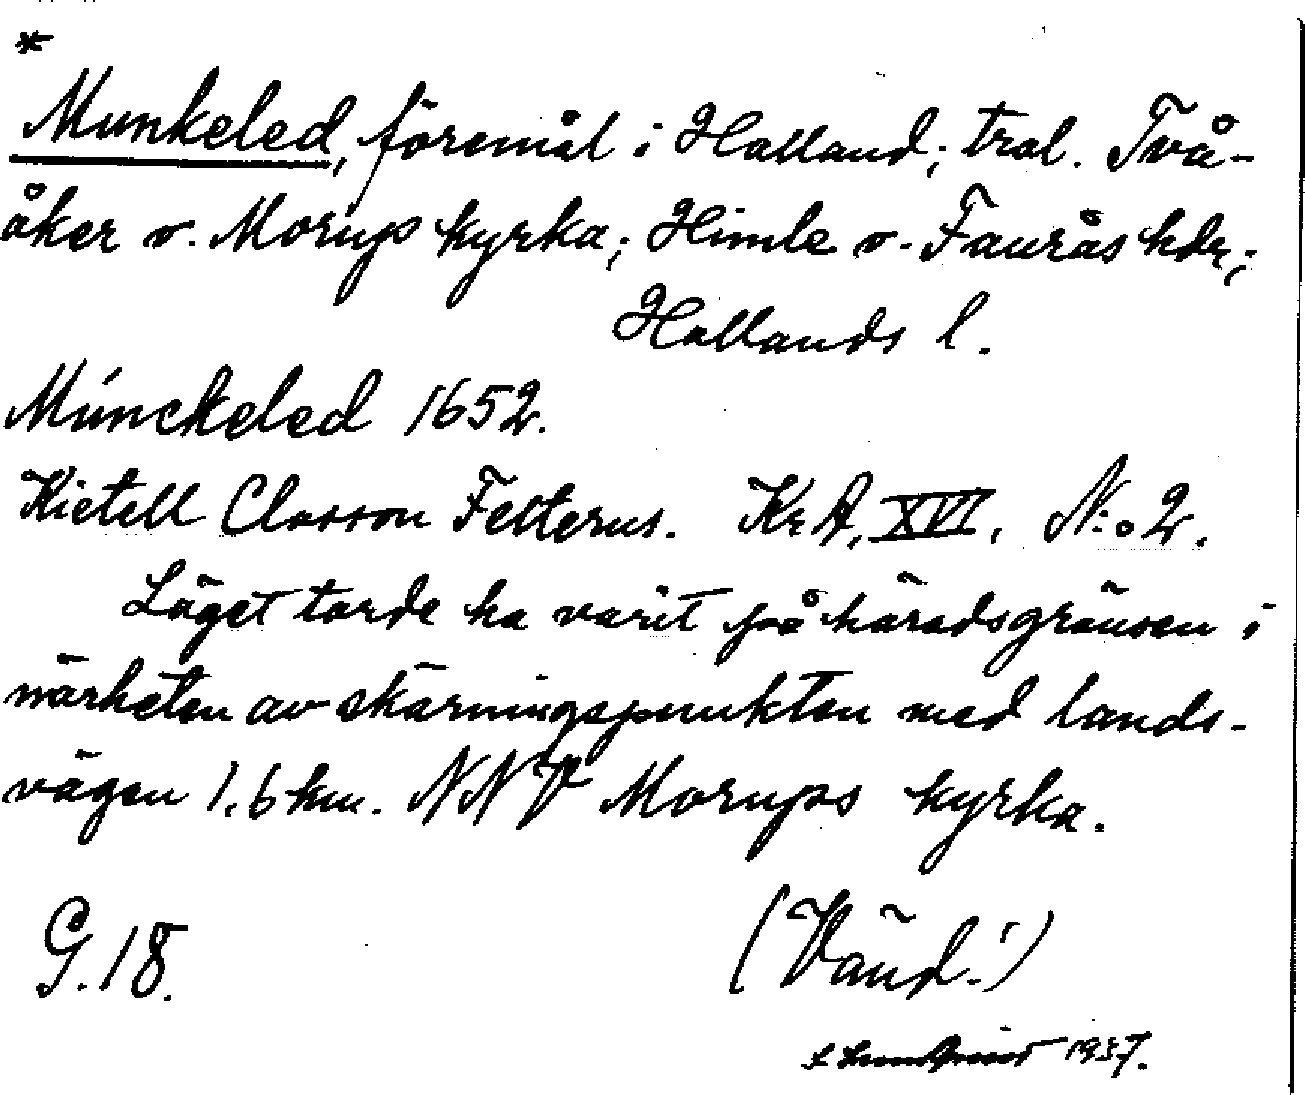 *
Munkeled, föremål i Halland; trol. Två-
åker o. Morups kyrka; Himle o. Faurås hdr;
Hallands l.
Múnckeled 1652.
Kietell Classon Felterus. KrA, XVI, N:o 2.
Läget torde ha varit på häradsgränsen i
närheten av skärningspunkten med lands-
vägen 1,6 km. NNV Morups kyrka.
G. 18.
(Vänd!)
1937.